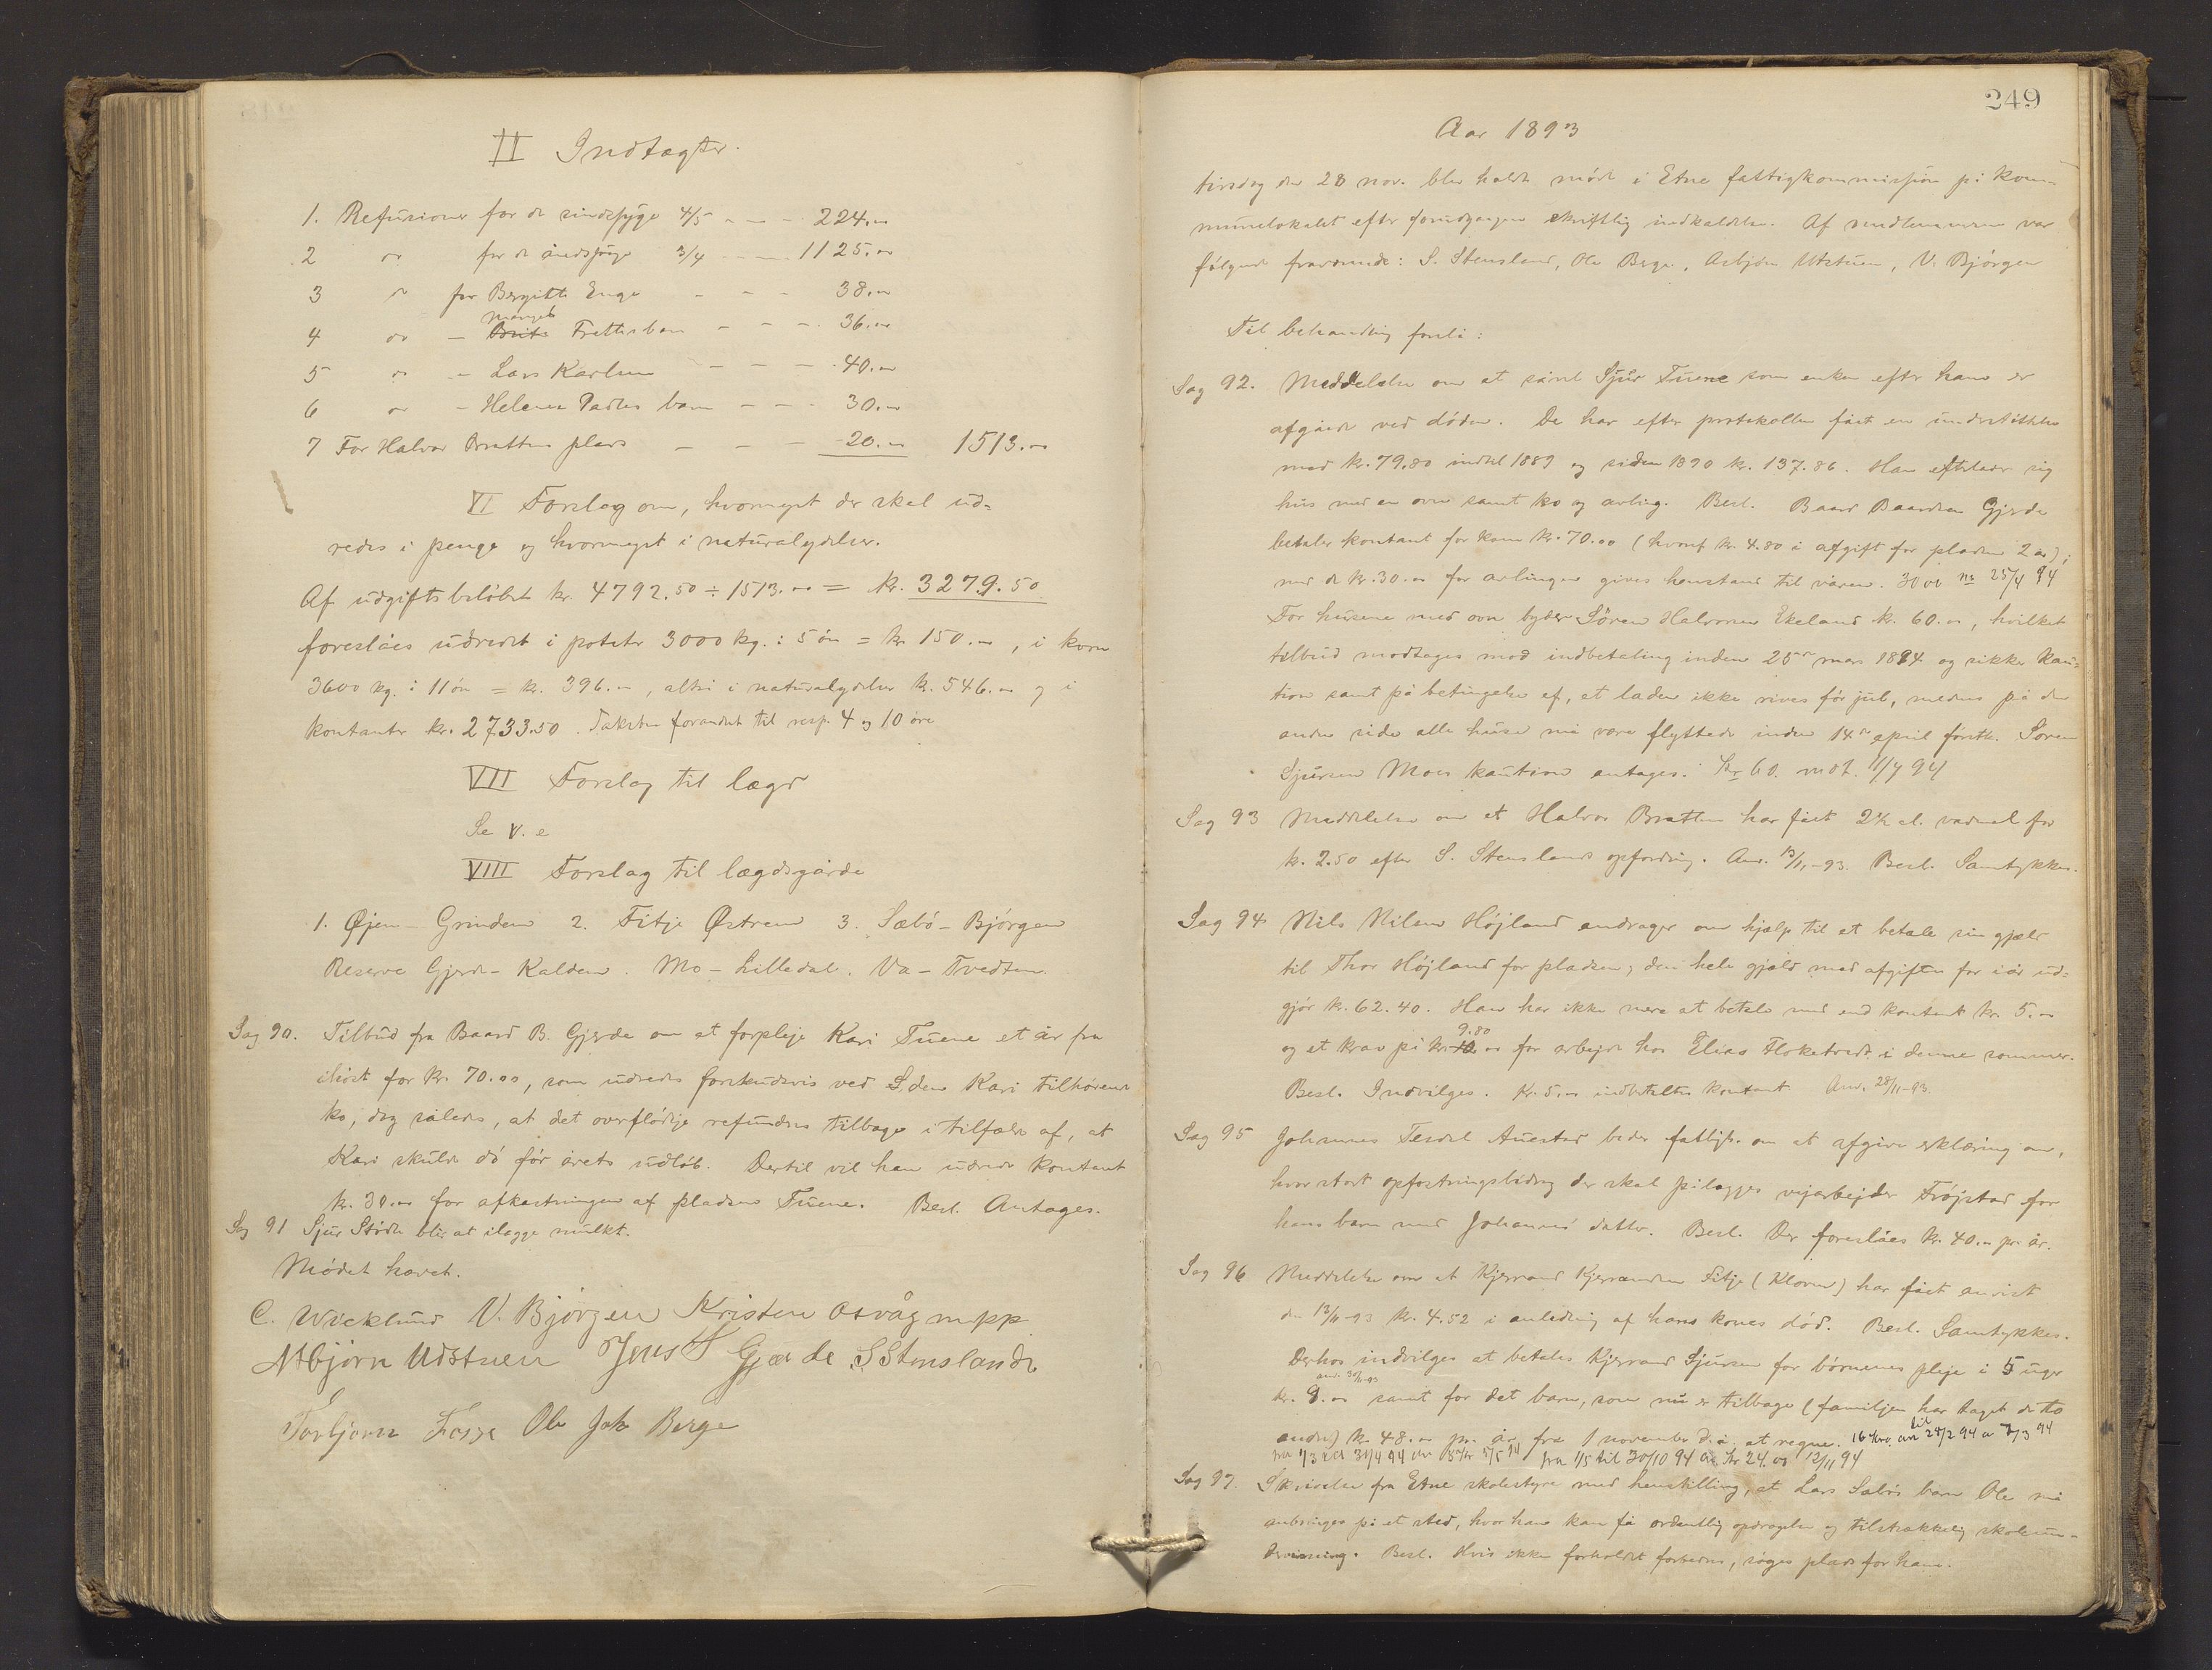 II Indtægter.
1. Refusioner for de sindssyge 4/5 - - - 224.00
2 do for de åndssvage 3/4 - - - 1125.00
3 do for Bergitte Enge - - - 38.00
4 do - Frettes barn - - - 36.00
5 do - Lars Karlsen - - - 40.00
6 do - Helene barn - - - 30.00
7 For Halvor Brattens plads - - - 20.00 1513.00
VI Forslag om, hvormeget der skal ud=
redes i penge og hvormeget i naturalydelser.
Af udgiftsbeløbet kr. 4792.50 ÷ 1513.00 = kr. 3279.50
foreslåes udredet i poteter 3000 kg. i 5 øre = kr 150.00, i korn
3600 kg. i 11 øre = kr. 396.00, altså i naturalydelser kr. 546.00 og i
kontanter kr. 2733.50. Taksten forandret til resp. 4 og 10 øre
VII Forslag til lægd
Se V. e
VIII Forslag til lægdsgårde
1. Øjen - Grinden 2. Fitje Østrem 3. Sæbø - Bjørgen
Reserve Gjerde - Kalden. Mo - Lilledal. Va - Tvedten.
Sag 90. Tilbud fra Baard B. Gjerde om at forpleje Kari Tuene et år fra
ihøst for kr. 70.00, som udredes forskudsvis ved den Kari tilhørende
ko, dog således, at det overflødige refunderes tilbage i tilfælde af, at
Kari skulde dø før årets udløb. Dertil vil han udrede kontant
kr. 30.00 for afkastningen af pladsen Tuene. Besl. Antages.
Sag 91 Sjur Støle blir at ilægge mulkt.
Mødet hævet.
C. Wicklund V. Bjørgen Kristen Osvåg mpp
Asbjørn Udstuen Jens S Gjærde S Stensland
Torbjørn Fosse Ole Joh Berge
249
Aar 1893
tirsdag den 28 nov. blev holdt møde i Etne fattigkommission på kom=
munelokalet efter forudgangen skriftlig indkaldelse. Af medlemmerne var
følgende fraværende: S. Stensland, Ole Berge, Asbjørn Utstuen, V. Bjørgen
Til behandling forelå:
Sag 92. Meddelelse om at såvel Sjur Tuene som enken efter ham er
afgåede ved døden. De har efter protokollen fået en understøttelse
med kr. 79.80 indtil 1889 og siden 1890 kr. 137.86. Han efterlader sig
hus med en ovn samt ko og avling. Besl. Baard Baardsen Gjerde
betaler kontant for koen kr. 70.00 (hvoraf kr. 4.80 i afgift for pladsen 2 år);
med de kr. 30.00 for avlingen gives henstand til våren. 30 00 25/4 94
For husene med ovn byder Søren Halvorsen Ekeland kr. 60.00, hvilket
tilbud modtages mod indbetaling inden 25de mars 1894 og sikker kau=
tion samt på betingelse af, at laden ikke rives før jul, medens på den
anden side alle huse må være flyttede inden 14de april førstk. Søren
Sjursen Moes kaution antages. Kr 60. mot. 94
Sag 93 Meddelelse om at Halvor Bratten har fået 2½ al. vadmel for
kr. 2.50 efter S. Stenslands opfordring. Anv. 13/11-93. Besl. Samtykkes.
Sag 94 Nils Nilsen Højland andrager om hjælp til at betale sin gjæld
til Thor Højland for pladsen, den hele gjæld med afgiften for iår ud=
gjør kr. 62.40. Han har ikke mere at betale med end kontant kr. 5.00
og et krav på kr. 9.80 for arbejde hos Elias Floketvedt i denne sommer.
Besl. Indvilges. Kr. 5.00 indbetaltes kontant Anv. 28/11-93.
Sag 95 Johannes Tesdal Auestad beder fattigk. om at afgive erklæring om,
hvor stort opfostringsbidrag der skal pålægges vejarbejder Frøjstad for
hans barn med Johannes' datter. Besl. Der foreslåes kr. 40.00 pr. år.
Sag 96 Meddelelse om at Kjerrand Kjerrandsen Fitje (Kloven) har fået anvist
den 13/11-93 kr. 4.52 i anledning af hans kones død. Besl. Samtykkes.
Derhos indvilges at betales Kjerrand Sjursen for børnenes pleje i 5 uger
kr. 8.00 samt for det barn, som nu er tilbage (familjen har taget de to
andre) kr. 48.00 pr. år fra 1 november d. å. at regne. 16 kro. anv til 28/2 94 a 7/3 94
fra 1/3 til 31/4 94 5/5 94 fra 1/5 til 30/10 94 Kr 24.00 12/11 94
Sag 97. Skrivelse fra Etne skolestyre med henstilling, at Lars Sæbøs barn Ole må
anbringes på et sted, hvor han kan få ordentlig opdragelse og tilstrækkelig skoleun=
dervisning. Besl. Hvis ikke forholdet forbedres, søges plads for ham.